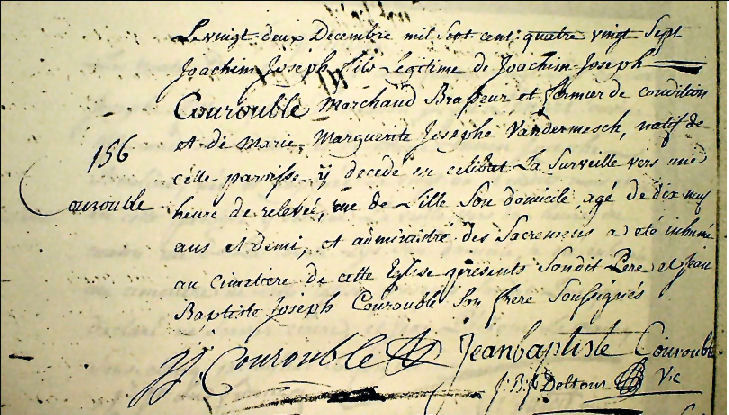 Le vingt deux Decembre mil Sept cent quatre vingt Sept
Joachim Joseph fils Legitime de Joachim Joseph
Courouble Marchand Brasseur et fermier de condition
et de Marie Marguerite Josephe Vandermesch, natif de
156
cette paroisse y decedé en celibat La Surveille vers une
Courouble
heure de relevée, rue de Lille Son domicile agé de dix neuf
ans et demi, et administré des Sacremens a eté inhumé
au cimetiere de cette Eglise presents Sondit Pere et Jean
Baptiste Joseph Courouble Son frere Soussignés
Courouble Jeanbaptiste Courouble
J: B: J: Vic